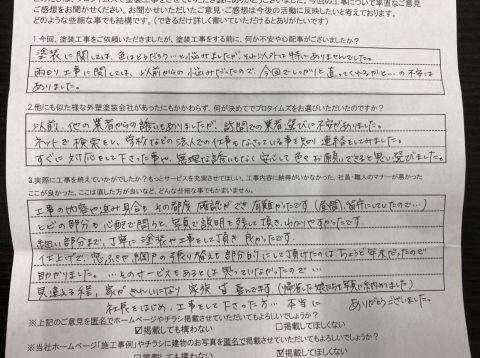 ご感想をお聞かせください。お聞かせいただいたご意見・ご感想は今後の活動に反映したいと考えております。
どのような些細な事でも結構です。（できるだけ詳しく書いていただけるとありがたいです）
1.今回、塗装工事をご依頼いただきましたが、塗装工事をする前に、何か不安や心配事がございましたか？
塗装に関しては、色はどうだろう…と悩みましたが、それ以外は特にありませんでした。
雨向り工事に関しては、以前からの悩みだったので、今回でしっかりと直ってくれるかと…の不安は
ありました。
2.他にも似た様な外壁塗装会社があったにもかかわらず、何が決めてでプロタイムズをお選びいただいたのですか？
以前、他の業者からの誘いもありましたが、訪問での業者選びに不安がありました。
ネットで検索をし、学校などの法人での仕事もなさっている事を知り連絡をしてみました。
すぐに対応をして下さった事や、無理な誘いもなく安心して色々お願いできると思い選びました。
3.実際に工事を終えていかがでしたか？もっとサービスを充実させてほしい、工事内容に納得がいかなかった、社員・職人のマナーが悪かった
ここが良かった、ここは直した方が良いなど、どんな些細な事でもかまいません。
工事の内容や進み具合も その都度 確認ができ 有難かったです（昼間、留守にしていたので…）
ヒビの部分も心配で聞うと、写真で説明を残して頂き、わかりやすかったです。
細かい部分まで、丁寧に塗装や工事をして頂き 良かったです。
仕上げで、窓ふきや網戸の張り替えも部分的にして頂けたのは、ちょうど年末だったので
助かりました。…そのサービスもあるとは思っていなかったので…
見違える程、家がきれいになり 家族一皆 喜んでます（帰省した娘たちも写真に納めてました）
社長をはじめ、工事をして下さった方… 本当に ありがとうございました。
※上記のご意見を匿名でホームページやチラシ掲載させていただいてもよろしいでしょうか？
☑掲載しても構わない □掲載してほしくない
※当社ホームページ「施工事例」やチラシに建物のお写真を匿名で掲載させていただいてもよろしいでしょうか？